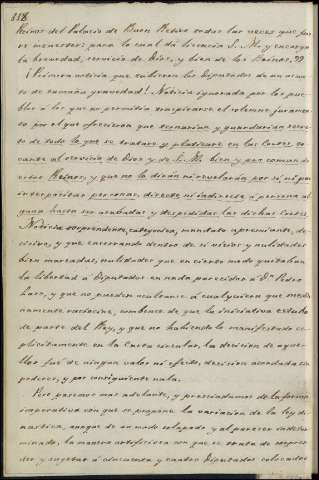 118
Reinos del Palacio de Buen Retiro todas las veces que fue-
re menester; para lo cual dá licencia S. M. y encarga
la brevedad, servicio de Dios, y bien de los Reinos."
¡Primera noticia que tubieron los Diputados de un asun-
to de tamaña gravedad! Noticia ignorada por los pue-
blos á los que no permitia traspirarse el solemne juramen-
to por el que ofrecieron que tendrian y guardarian secre-
to de todo lo que se tratare y platicare en las Cortes to-
cante al servicio de Dios y de S. M. bien y pro comun de
estos Reinos, y que no lo dirán ni revelarán por sí, ni por
interpósitas personas, directe ni indirecte á persona al-
guna hasta ser acabadas y despedidas las dichas Cortes.
Noticia sorprendente, categorica, mandato apremiante, de-
cisivo, y que encerrando dentro de si vicios y nulidades
bien marcadas, nulidades que en cierto modo quitaban
la libertad á Diputados en nada parecidos á Dn. Pedro
Laso, y que no pueden ocultarse á cualquiera que media-
namente raciocine, convence de que la iniciativa estuvo
de parte del Rey, y que no habiendolo manifestado es-
plicitamente en la Carta circular, la decision de aque-
llos fué de ningun valor ni efecto, decision acordada sin
poderes, y por consiguiente nula.
Pero pasemos mas adelante, y prescindamos de la forma
imperativa con que se propone la variacion de la ley di-
nastica, aunque de un modo solapado y al parecer indeter-
minado, la manera artificiosa con que se trata de sorpren-
der y sugetar á cincuenta y cuatro Diputados colocados